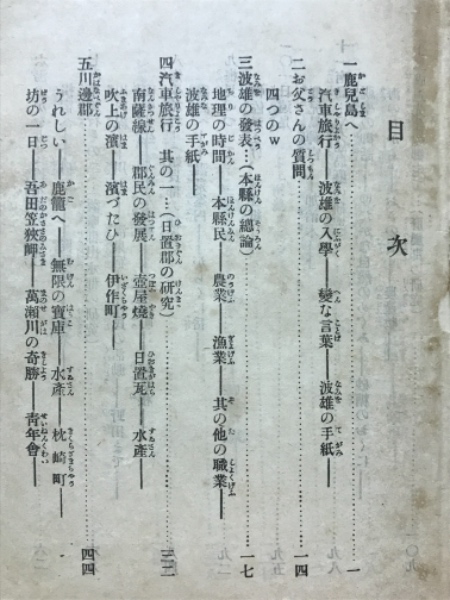 目次
一鹿兒島へ……一
汽車旅行――波雄の入學――變な言葉――波雄の手紙――
二お父さんの質問……一四
四つのw
三波雄の發表…(本縣の總論)……一七
地理の時間――本縣民――農業――漁業――其の他の職業――
波雄の手紙――
四汽車旅行 其の一…(日置郡の研究)……三二
南薩線――郡民の發展――壺屋燒――日置瓦――水產――
吹上の濱――濱づたひ――伊作町――
五川邊郡……四四
うれしい――鹿籠へ――無限の寶庫――水產 枕崎町――
坊の一日――吾田笠狹岬――萬瀨川の奇勝――靑年會――